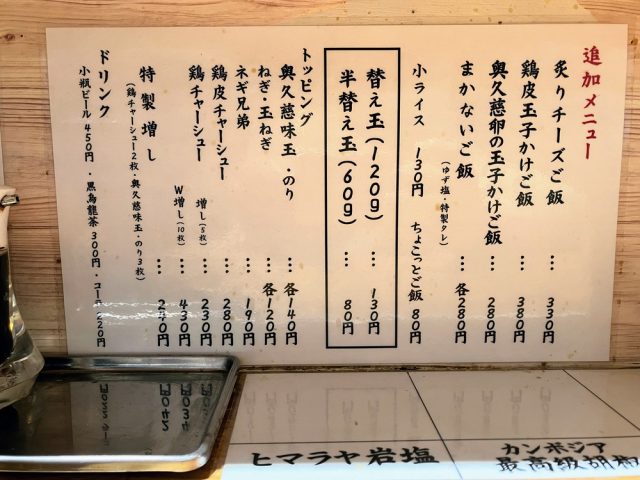 追加メニュー
炙りチーズご飯 … 330円
鶏皮玉子かけご飯 … 380円
奥久慈卵の玉子かけご飯 … 280円
まかないご飯 … 各280円
(ゆず塩・特製タレ)
小ライス 130円 ちょこっとご飯 80円
替え玉(120g) … 130円
半替え玉(60g) … 80円
トッピング
奥久慈味玉・のり … 各140円
ねぎ・玉ねぎ … 各120円
ネギ兄弟 … 190円
鶏皮チャーシュー … 280円
鶏チャーシュー 増し(5枚) … 230円
W増し(10枚) … 430円
特製増し … 240円
(鶏チャーシュー2枚・奥久慈味玉・のり3枚)
ドリンク
小瓶ビール 450円・黒烏龍茶300円・コーラ220円
ヒマラヤ岩塩
カンボジア
最高級胡椒